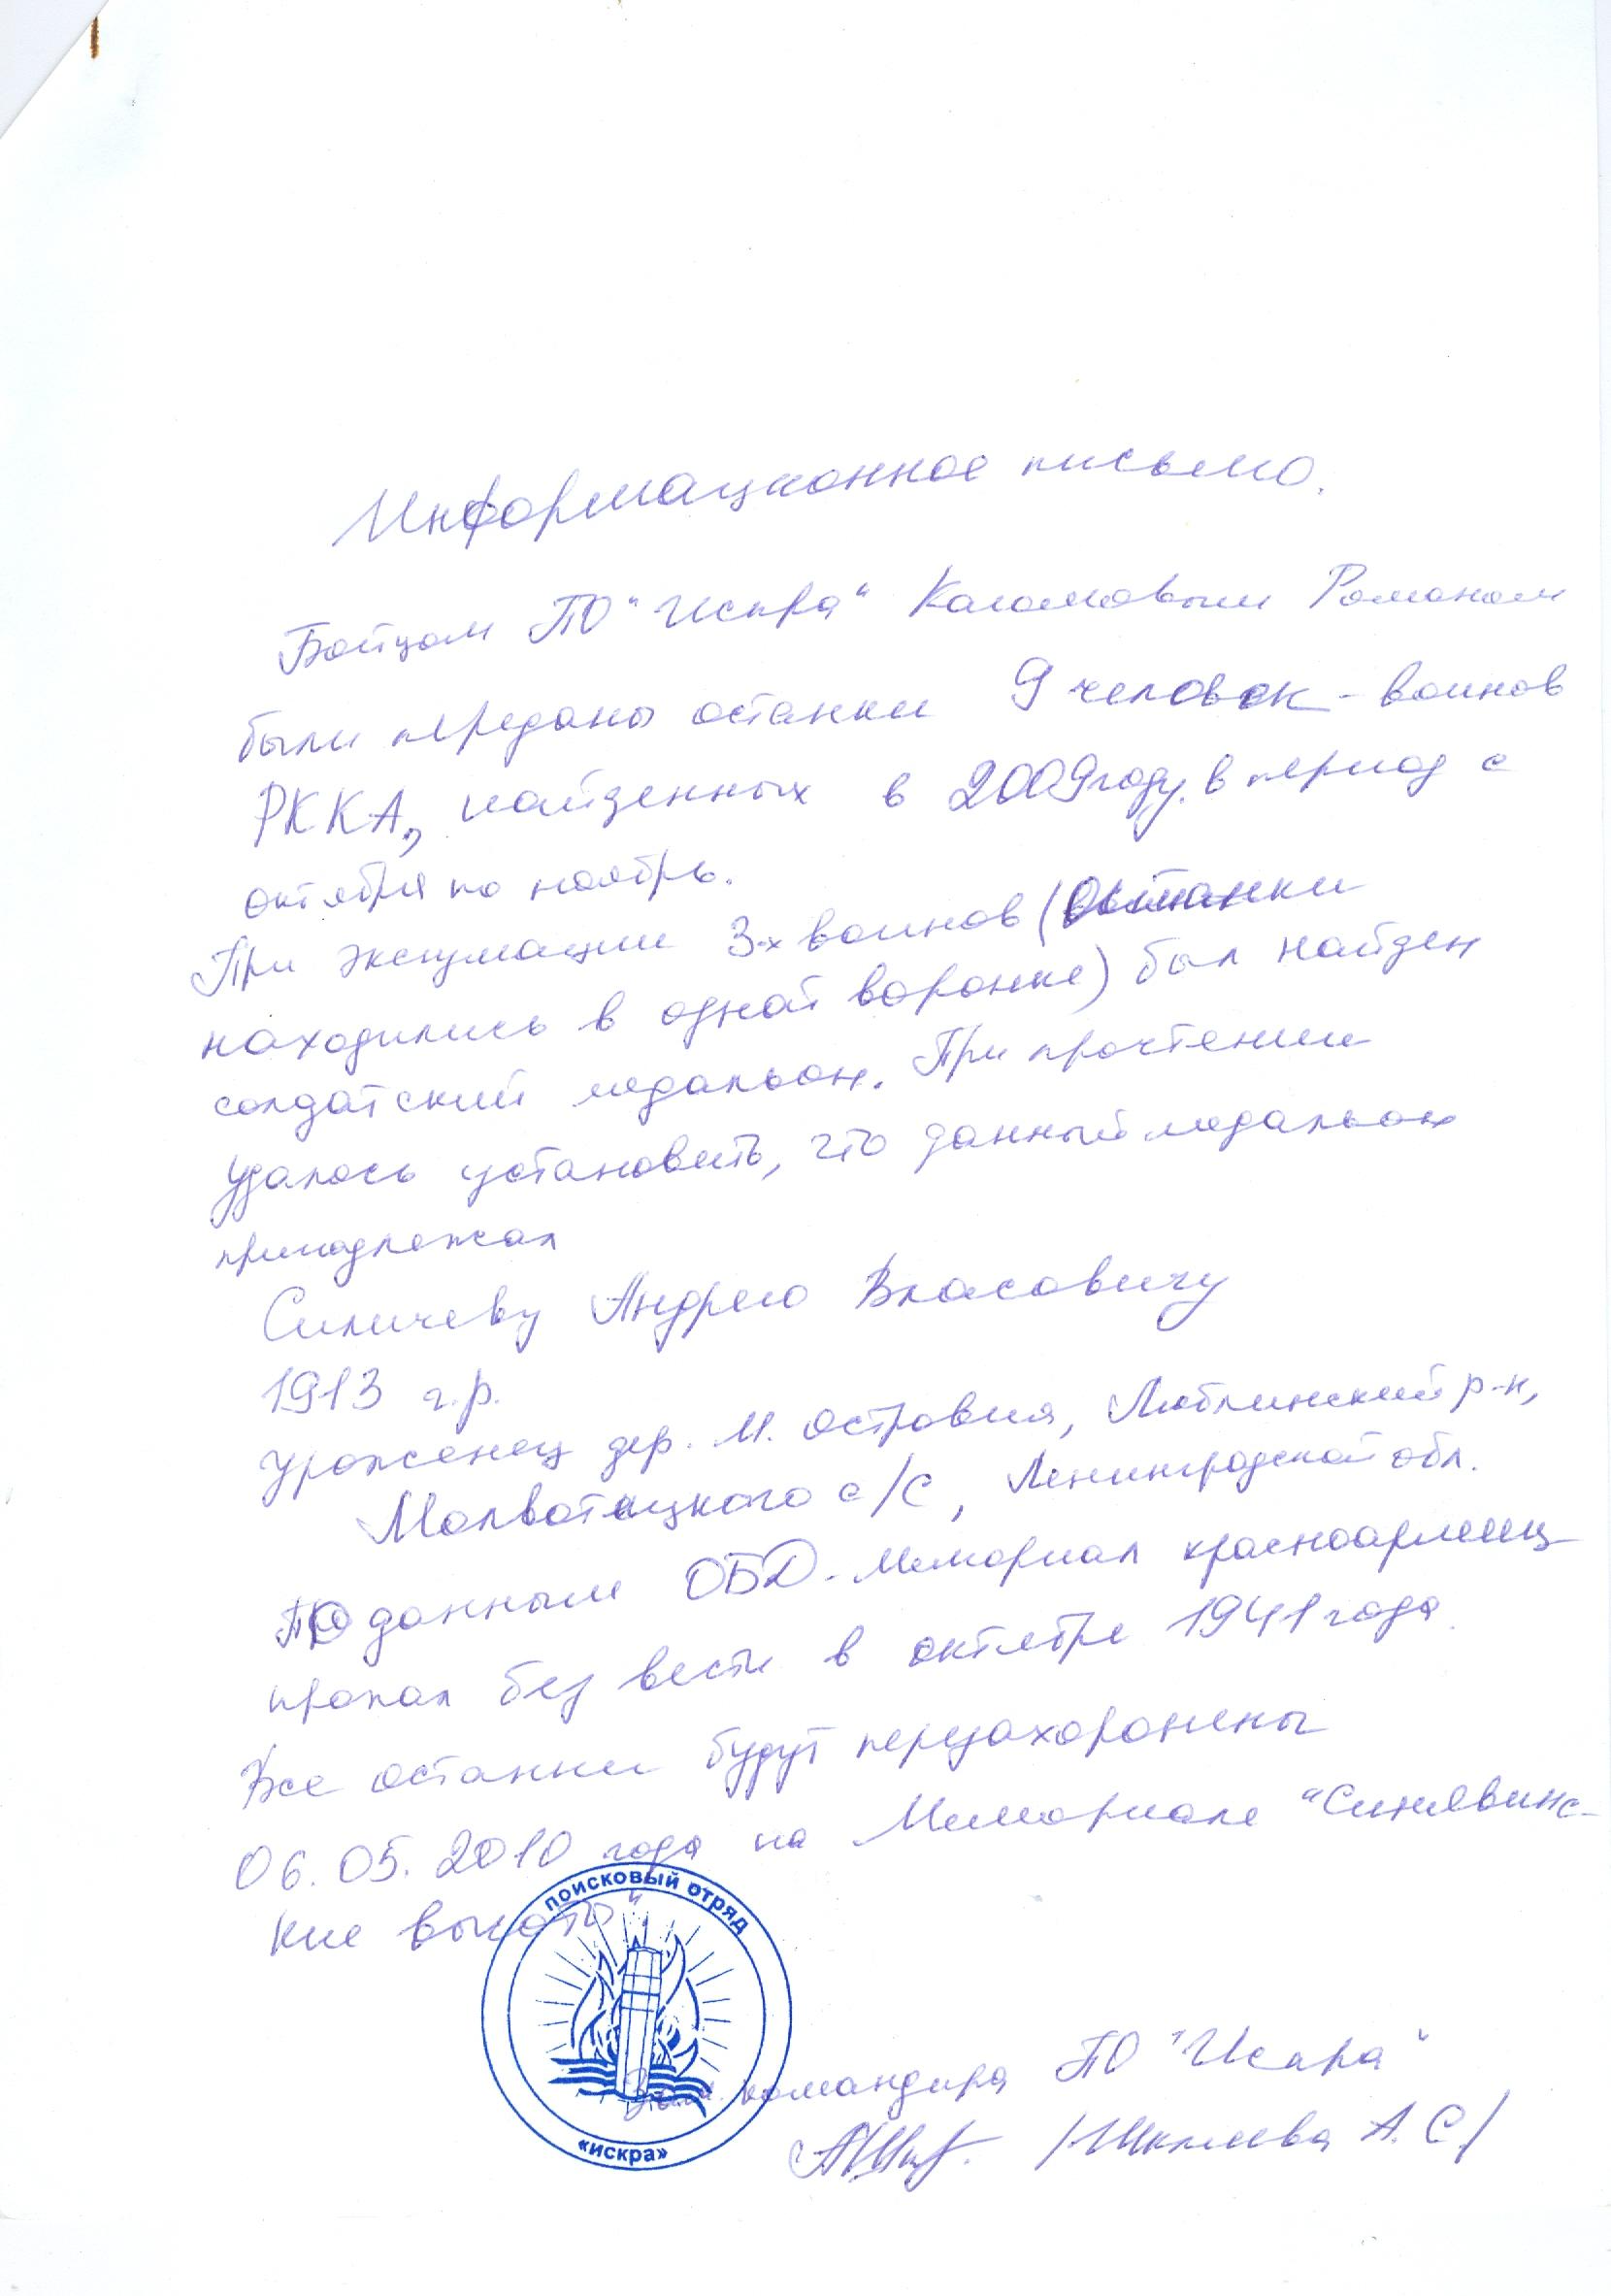 Информационное письмо.
Бойцом ПО "Искра" Романом
были переданы останки 9 человек - воинов
РККА, найденных в 2009 году. в период с
октября по ноябрь.
При эксгумации 3-х воинов (останки
находились в одной воронке) был найден
солдатский медальон. При прочтении
удалось установить, что данный медальон
принадлежал
Силичеву Андрею Власовичу
1913 г.р.
Уроженец дер. М. Островня, Люблинский р-н,
с/с, Ленинградской обл.
По данным ОБД-Мемориал красноармеец
пропал без вести в октябре 1941 года.
Все останки будут перезахоронены
06.05.2010 года на Мемориале "Синявинс-
кие высоты".
поисковый отряд
«искра»
Зам. командира ПО "Искра"
/Шкляева А.С./